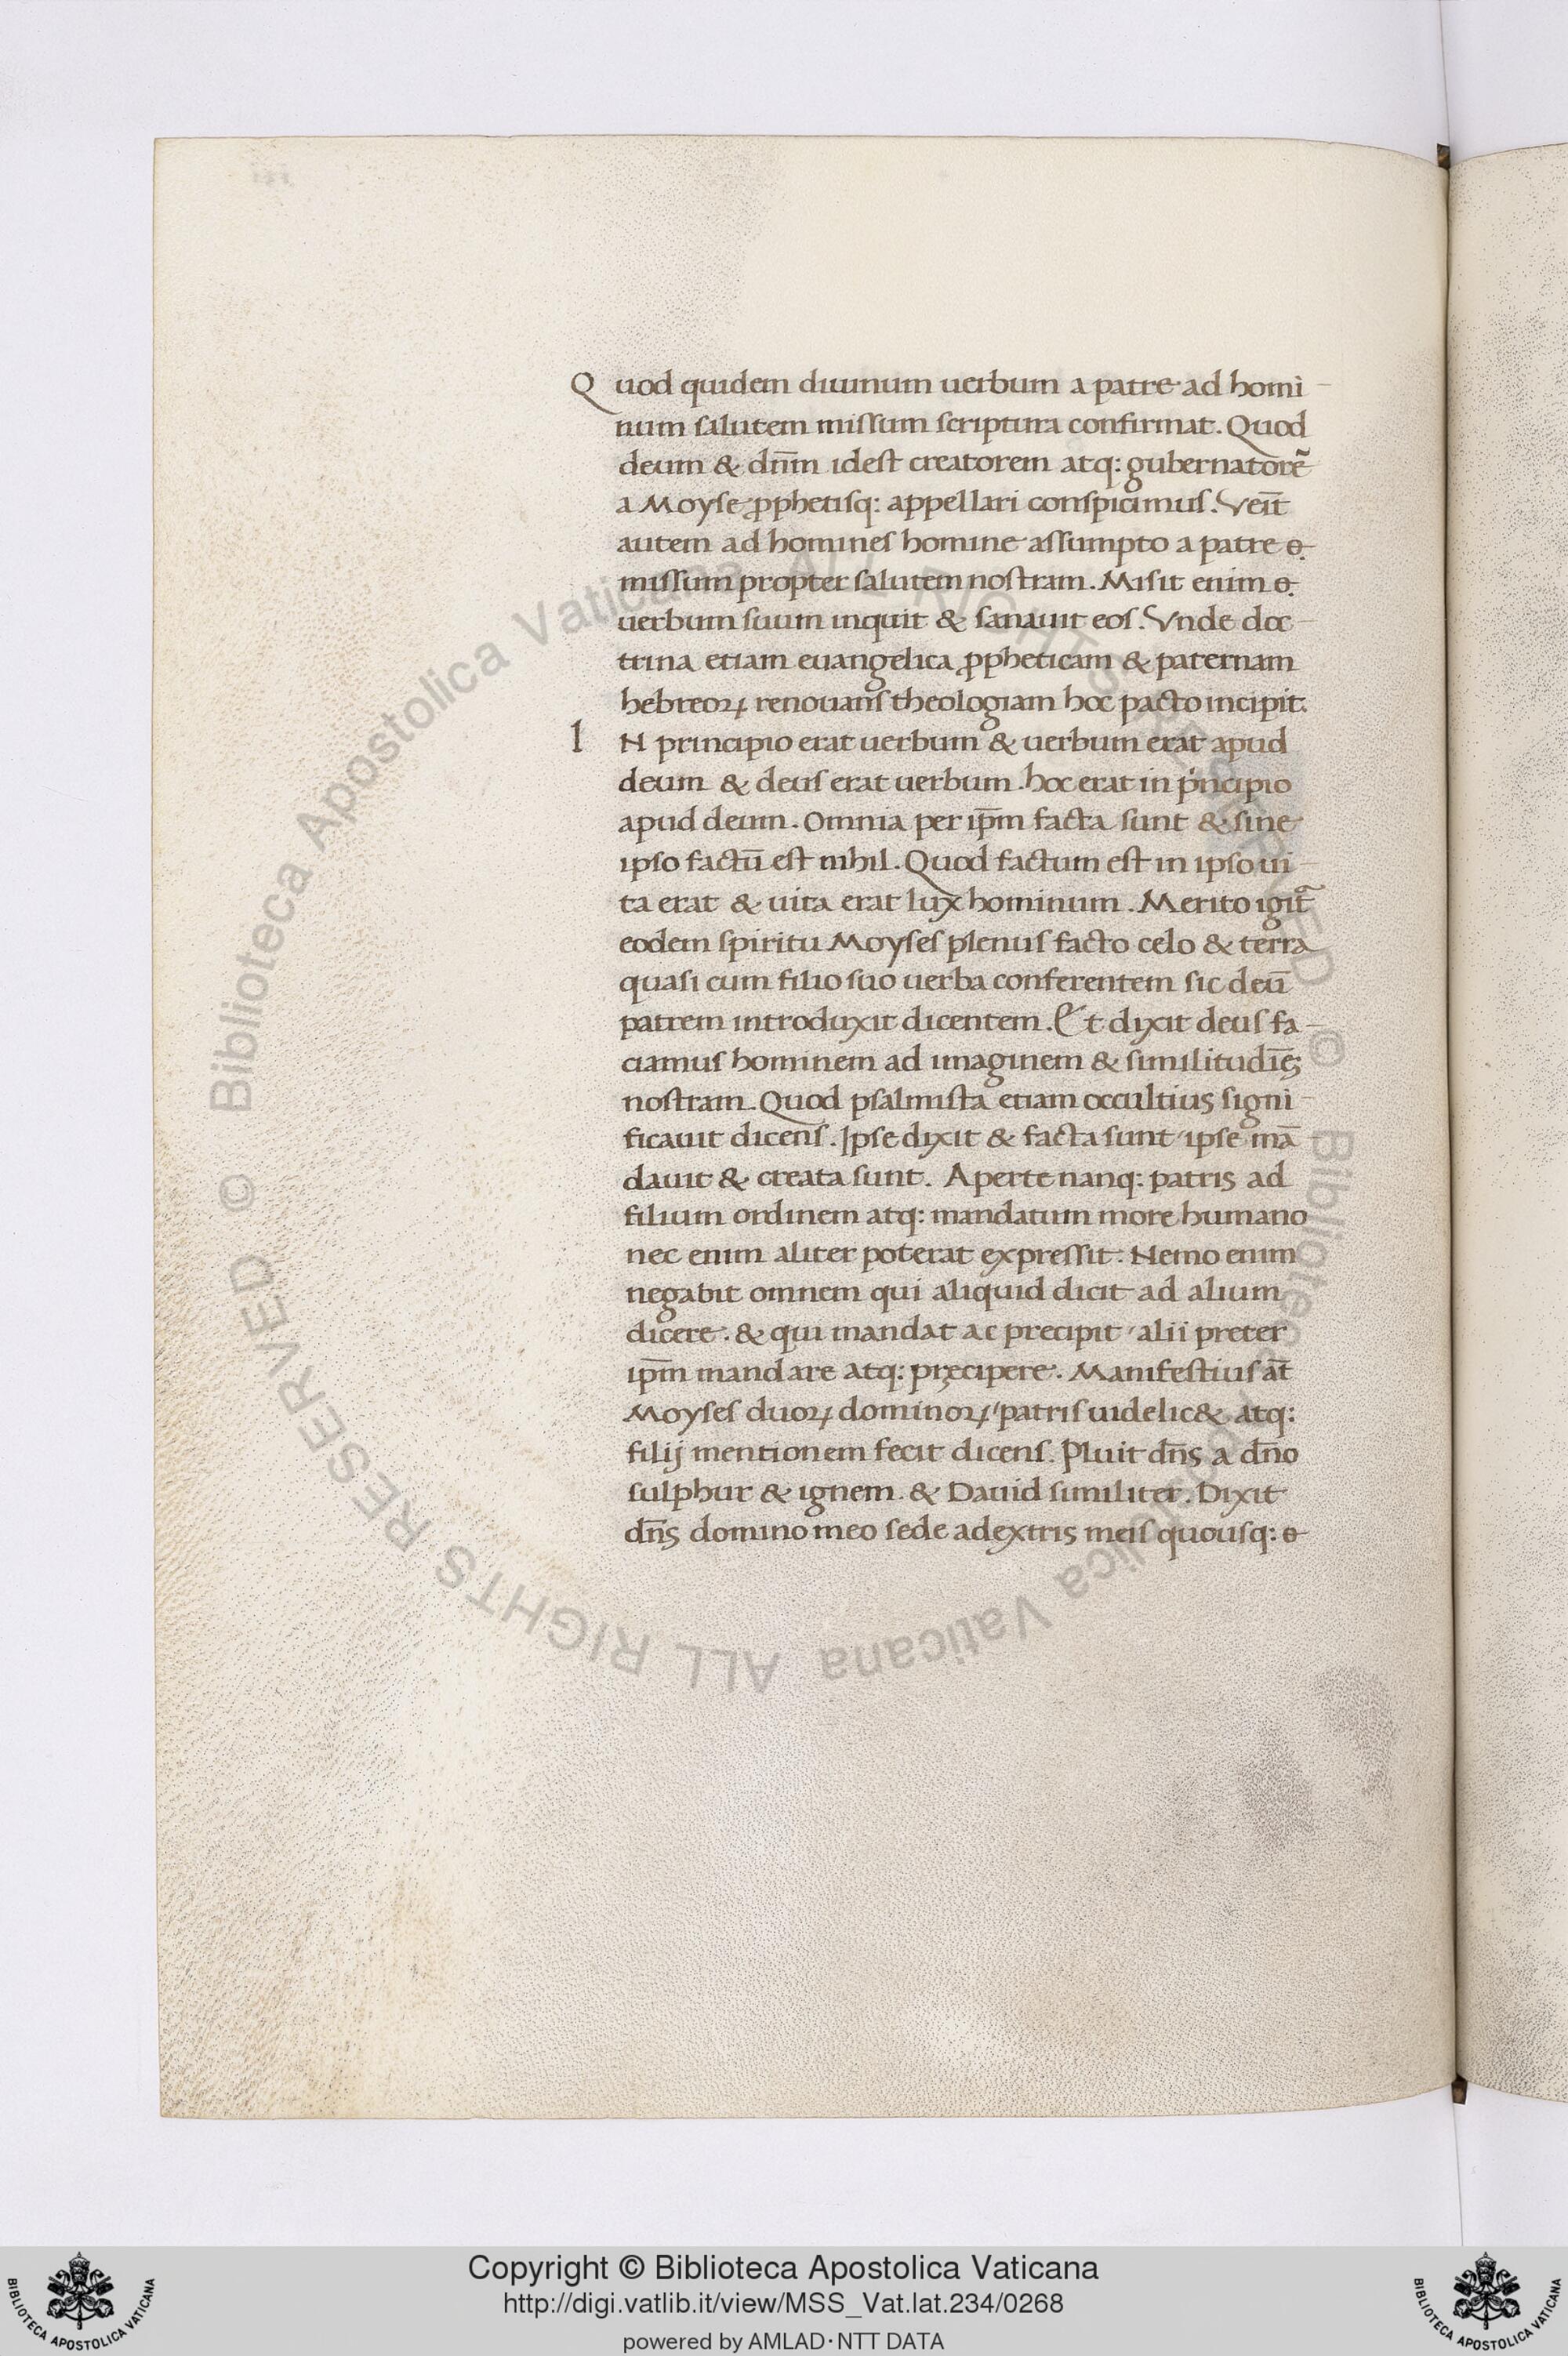 Quod quidem diuinum uerbum a patre ad homi-
num salutem missum scriptura confirmat. Quod
deum & dñm idest creatorem atq: gubernatorē
a Moyse ꝓphetisq: appellari conspicimus. Veīt
autem ad homines homine assumpto a patre e
missum propter salutem nostram. Misit enim e
uerbum suum inquit & sanauit eos. Vnde doc-
trina etiam euangelica ꝓpheticam & paternam
hebreoꝝ renouans theologiam hoc pacto incipit.
IN principio erat uerbum & uerbum erat apud
deum & deus erat uerbum. hoc erat in pͥncipio
apud deum. Omnia per ip̄m facta sunt & sine
ipso factū est nihil. Quod factum est in ipso ui-
ta erat & uita erat lux hominum. Merito igit᷑
eodem spiritu Moyses plenus facto celo & terra
quasi cum filio suo uerba conferentem sic deū
patrem introduxit dicentem. Et dixit deus fa-
ciamus hominem ad imaginem & similitudīeꝫ
nostram. Quod psalmista etiam occultius signi-
ficauit dicens. Ipse dixit & facta sunt / ipse mā
dauit & creata sunt. Aperte nanq: patris ad
filium ordinem atq: mandatum more humano
nec enim aliter poterat expressit. Nemo enim
negabit omnem qui aliquid dicit ad alium
dicere. & qui mandat ac precipit / alii preter
ip̄m mandare atq: pręcipere. Manifestius āt
Moyses duoꝝ dominoꝝ / patris uidelic& atq:
filij mentionem fecit dicens. Pluit dn̄s a dn̄o
sulphur & ignem. & Dauid similiter. Dixit
dn̄s domino meo sede adextris meis quousq: e
© Biblioteca Apostolica Vaticana ALL RIGHTS RESERVED © Biblioteca Apostolica Vaticana ALL RIGHTS RESERVED
Copyright © Biblioteca Apostolica Vaticana
http://digi.vatlib.it/view/MSS_Vat.lat.234/0268
powered by AMLAD·NTT DATA
BIBLIOTECA APOSTOLICA VATICANA
BIBLIOTECA APOSTOLICA VATICANA